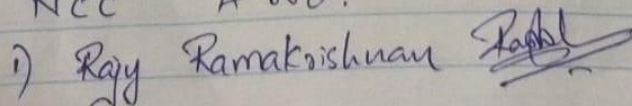 NCC
1) Rajy Ramakrishnan